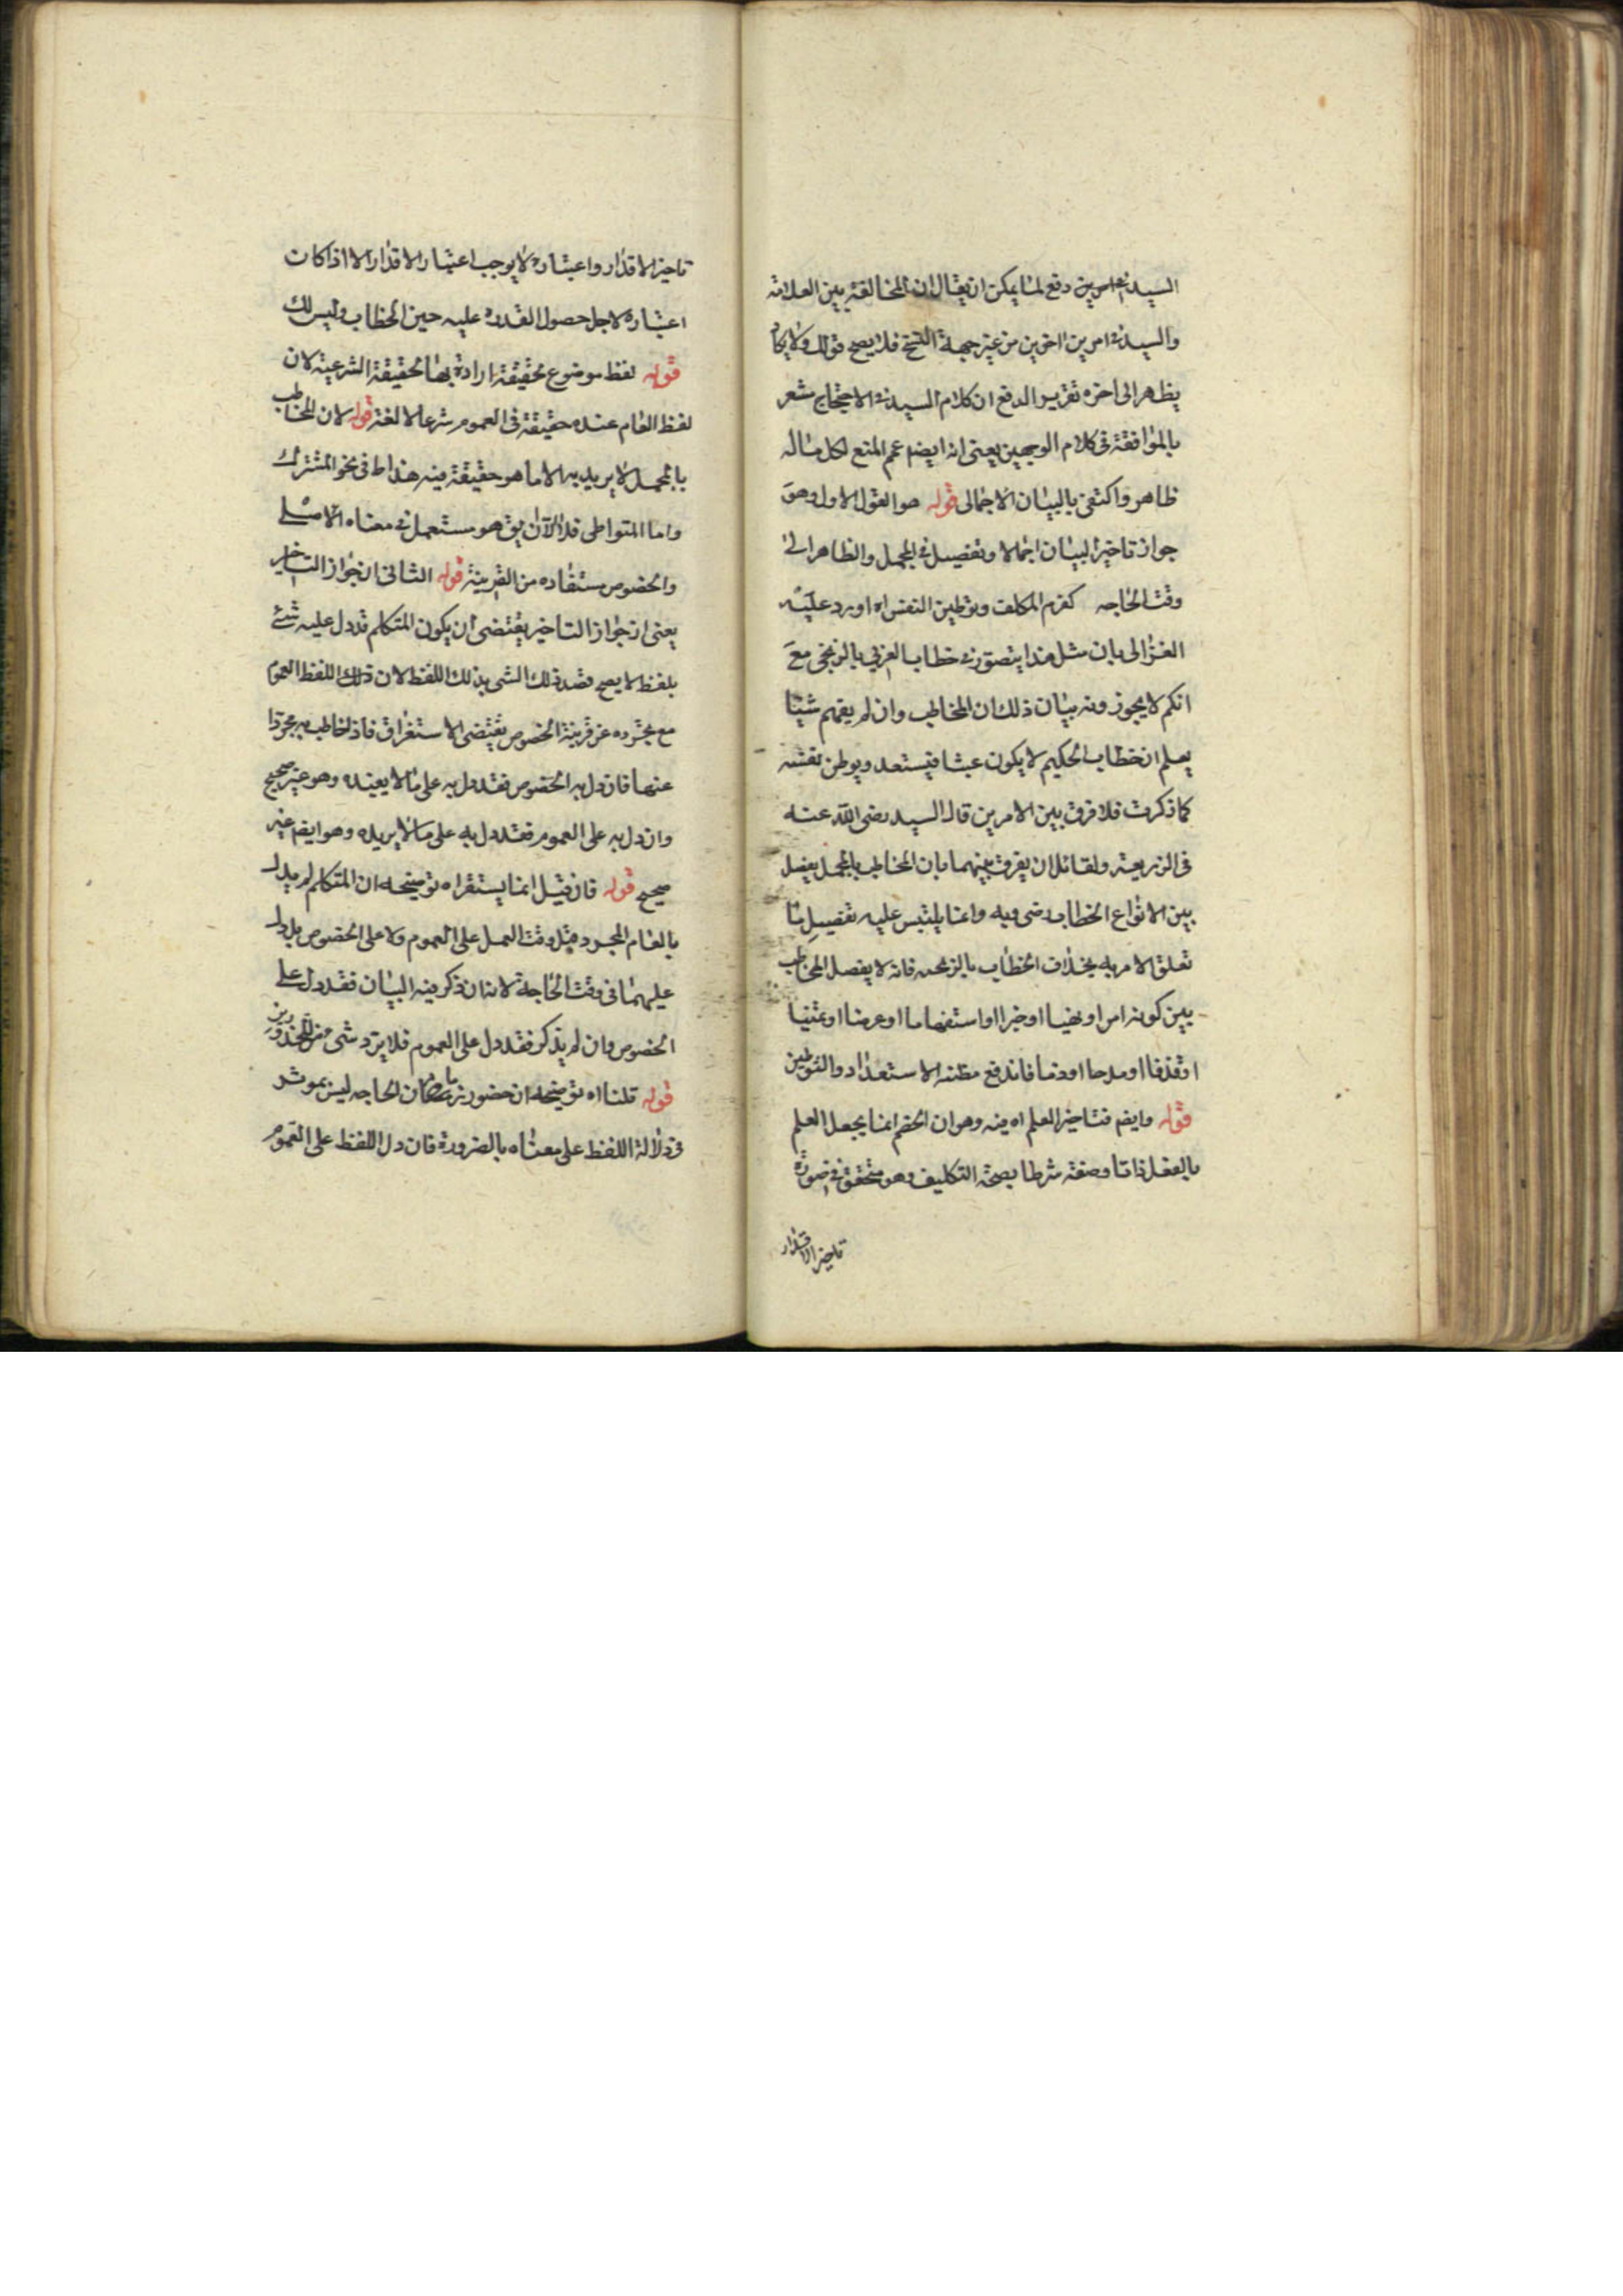 السيد في امرين دفع لما يمكن ان يقال ان المخالفة بين العلامة
والسيد في امرين اخرين من غير جهة النسخ فلا يصح قولك ولا يكاد
يظهر الى اخره تقرير الدفع ان كلام السيد في الاحتجاج مشعر
بالموافقة في كلام الوجهين يعنى انه ايضم عمم المنع لكل ماله
ظاهر واكتفى بالبيان الاجمالى قوله هو القول الاول وهو
جواز تاخير البيان اجمالا وتفصيل في المجمل والظاهر الى
وقت الحاجه كعزم المكلف وتوطين النفس اه اورد عليه
الغزالى بان مثل هذا يتصور في خطاب العربي بالزنجى مع
انكم لا يجوزونه بيان ذلك ان المخاطب وان لم يفهم شيئا
يعلم ان خطاب الحكيم لا يكون عبثا فيستعد ويوطن نفسه
كما ذكرت فلا فرق بين الامرين قال السيد رضى الله عنه
في الذريعة ولقائل ان يفرق بينهما بان المخاطب بالمجمل يفصل
بين الانواع الخطاب رضى وبه وانما يلتبس عليه تفصيل ما
تعلق الامر به بخلاف الخطاب بالزنجيه فانه لا يفصل المخاطب
بين كونه امرا او نهيا او خبرا او استفهاما او عرضا او تمنيا
او قذفا او مدحا او ذما فاندفع مظنه الاستعداد والتوطين
قوله وايضم فتاخير العلم اه فيه وهو ان الخصم انما يجعل العلم
بالفعل ذاتا وصفة شرطا بصحة التكليف وهو متحقق في صورة
تاخير الاقدار
تاخير الاقدار واعتباره لا يوجب اعتبار الاقدار الا اذا كات
اعتباره لاجل حصول القدرة عليه حين الخطاب وليس لك
قوله لفظ موضوع لحقيقة ارادة بها الحقيقة الشرعية لان
لفظ العام عنده حقيقة في العموم شرعا لا لغة قوله لان المخاطب
بالمجمل لا يريد به الا ما هو حقيقة فيه هذا ط في نحو المشترك
واما المتواطى فلا الآن يق هو مستعمل في معناه الاصلي
والخصوص مستفاده من القرينة قوله الثانى ان جواز التاخير
يعنى ان جواز التاخير يقتضى ان يكون المتكلم قد دل عليه شئ
بلفظ لا يصح قصد ذلك الشى بذلك اللفظ لان ذلك اللفظ العموم
مع تجرده عن قرينة الخصوص يقتضى الاستغراق فاذا خاطب به مجردا
عنها فان دل به الخصوص فقد دل به على ما لا يفيده وهو غير صحيح
وان دل به على العموم فقد دل به على ما لا يريده وهو ايضم غير
صحيح قوله فان قيل انما يستقر اه توضيحه ان المتكلم لم يدل
بالعام المجرد قبل وقت العمل على العموم ولا على الخصوص بل دل
عليهما في وقت الحاجة لانه ان ذكر فيه البيان فقد دل على
الخصوص وان لم يذكر فقد دل على العموم فلا يرد شى من المحذورين
قوله قلنا اه توضيحه ان حضور زمان الحاجه ليس بموثر
في دلالة اللفظ على معناه بالضرورة فان دل اللفظ على العموم